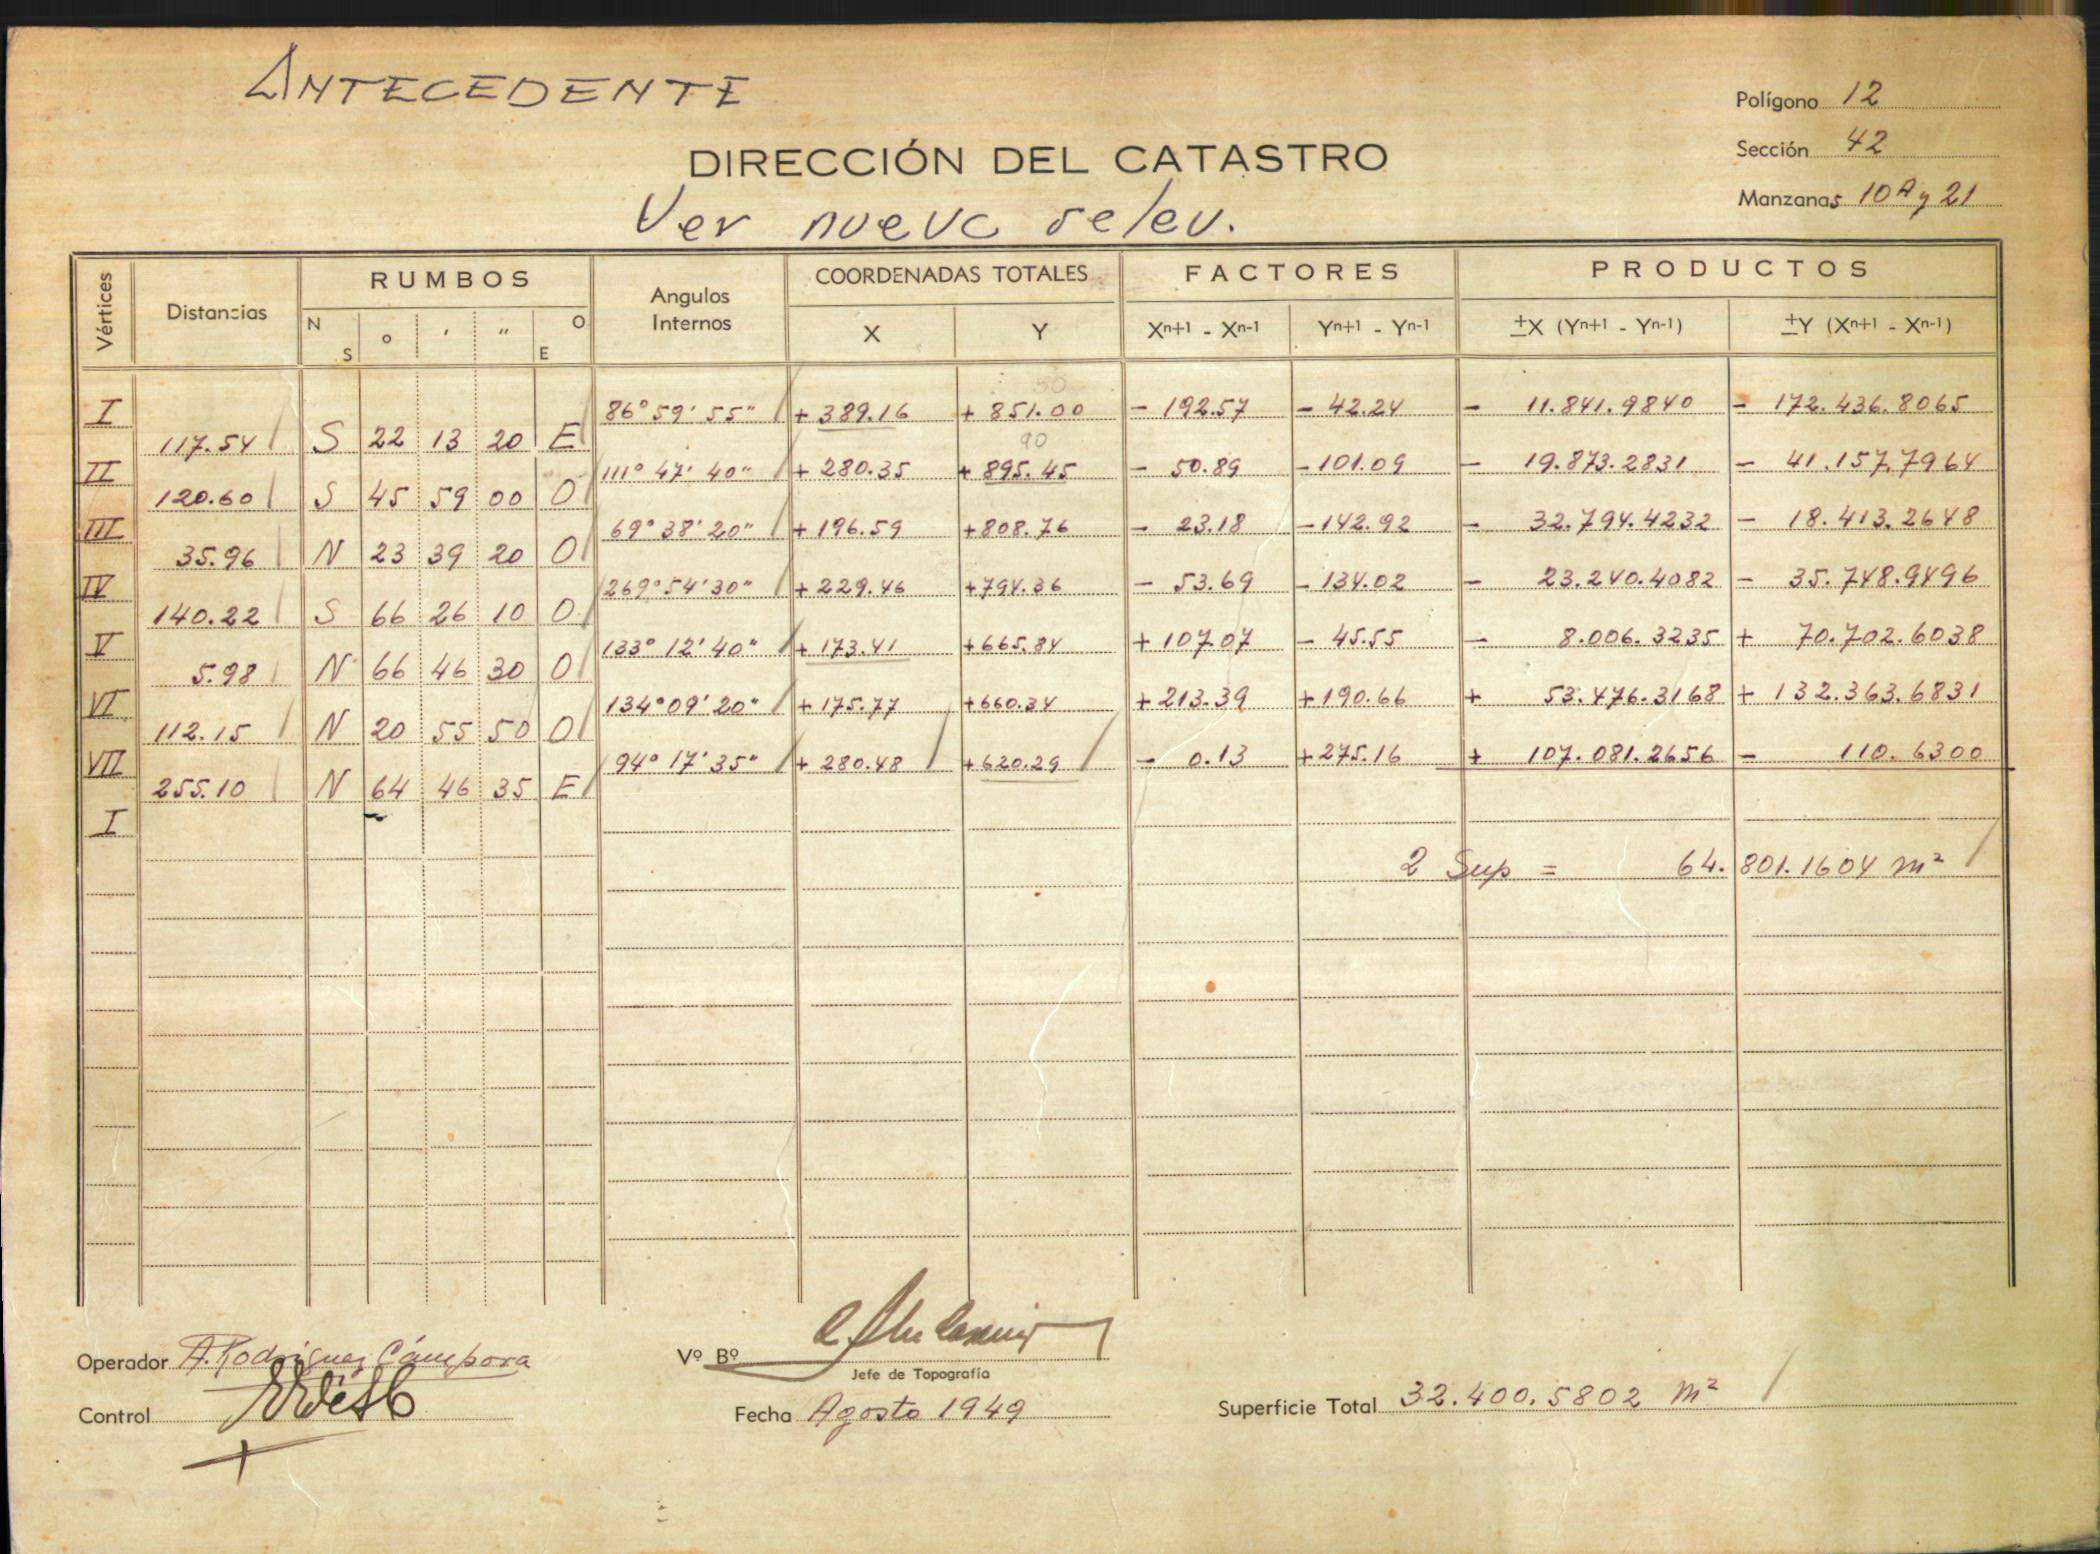 ANTECEDENTE
Polígono 12
Sección 42
Manzanas 10 A y 21
DIRECCIÓN DEL CATASTRO
Ver nuevo relev.
Vértices Distancias RUMBOS Angulos Internos COORDENADAS TOTALES FACTORES PRODUCTOS
N S ° ' " O E X Y Xn+1 - Xn-1 Yn+1 - Yn-1 ±X (Yn+1 - Yn-1) ±Y (Xn+1 - Xn-1)
I 86° 59' 55" + 389.16 + 851.00 - 192.57 - 42.24 - 11.841.9840 - 172.436.8065
117.54 S 22 13 20 E 90
II 111° 47' 40" + 280.35 + 895.45 - 50.89 - 101.09 - 19.873.2831 - 41.157.7964
120.60 S 45 59 00 O
III 69° 38' 20" + 196.59 + 808.76 - 23.18 - 142.92 - 32.794.4232 - 18.413.2648
35.96 N 23 39 20 O
IV 269° 54' 30" + 229.46 + 794.36 - 53.69 - 134.02 - 23.240.4082 - 35.748.9496
140.22 S 66 26 10 O
V 133° 12' 40" + 173.41 + 665.84 + 107.07 - 45.55 - 8.006.3235 + 70.702.6038
5.98 N 66 46 30 O
VI 134° 09' 20" + 175.77 + 660.34 + 213.39 + 190.66 + 53.476.3168 + 132.363.6831
112.15 N 20 55 50 O
VII 94° 17' 35" + 280.48 + 620.29 - 0.13 + 275.16 + 107.081.2656 - 110.6300
255.10 N 64 46 35 E
I
2 Sup = 64.801.1604 m²
Operador A. Rodriguez Cámpora
Vº Bº
Jefe de Topografía
Control
Fecha Agosto 1949
Superficie Total 32.400.5802 m²